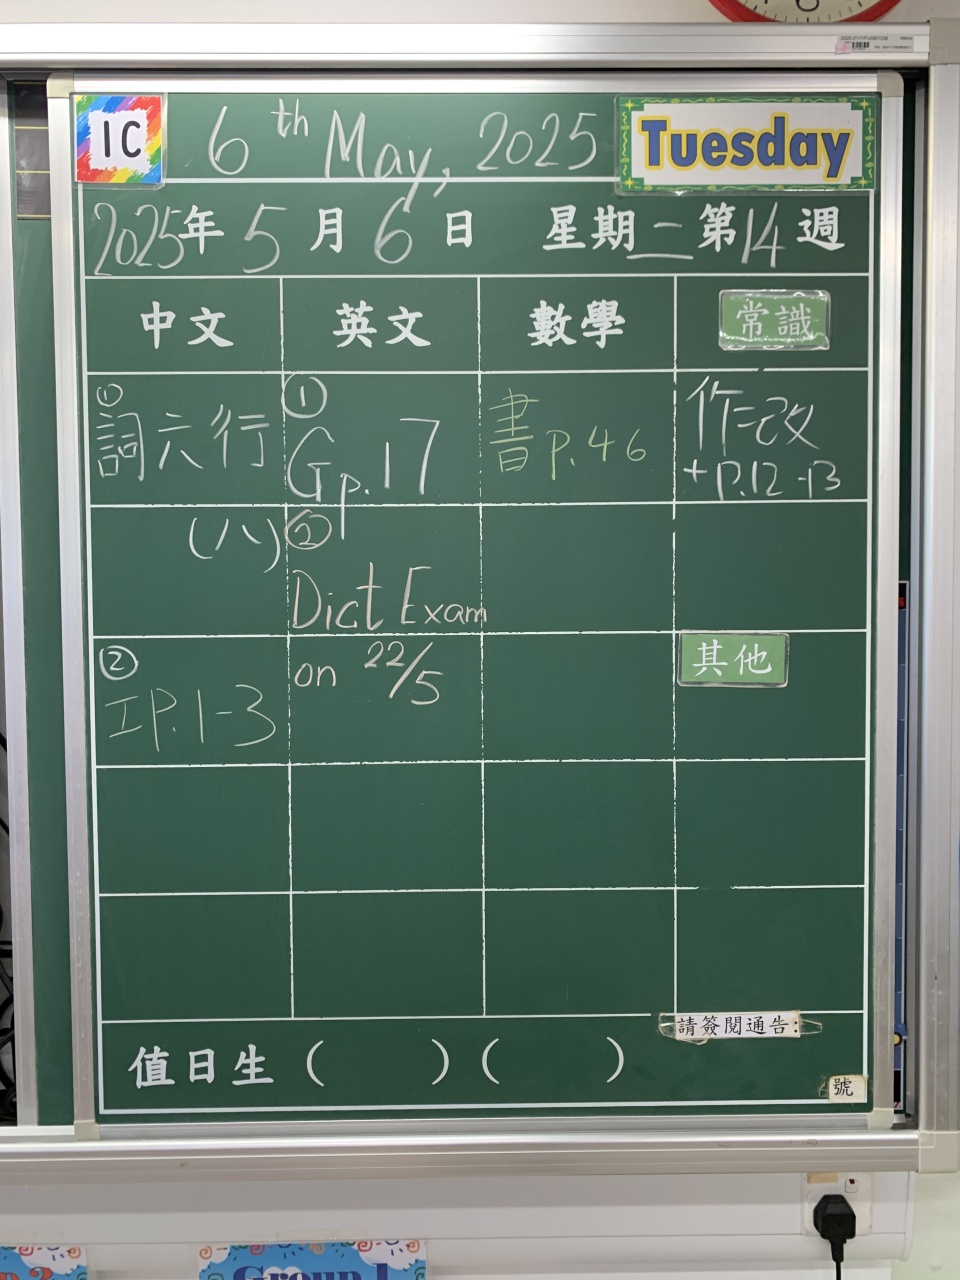 1C
6th May, 2025
Tuesday
2025年5月6日 星期二第14週
中文 英文 數學 常識
① 詞六行
(八)
② 工P.1-3
① Gp.17
② Dict Exam
on 22/5
書P.46
作二改
+P.12-13
其他
請簽閱通告:
值日生( )( )
號
Group 1